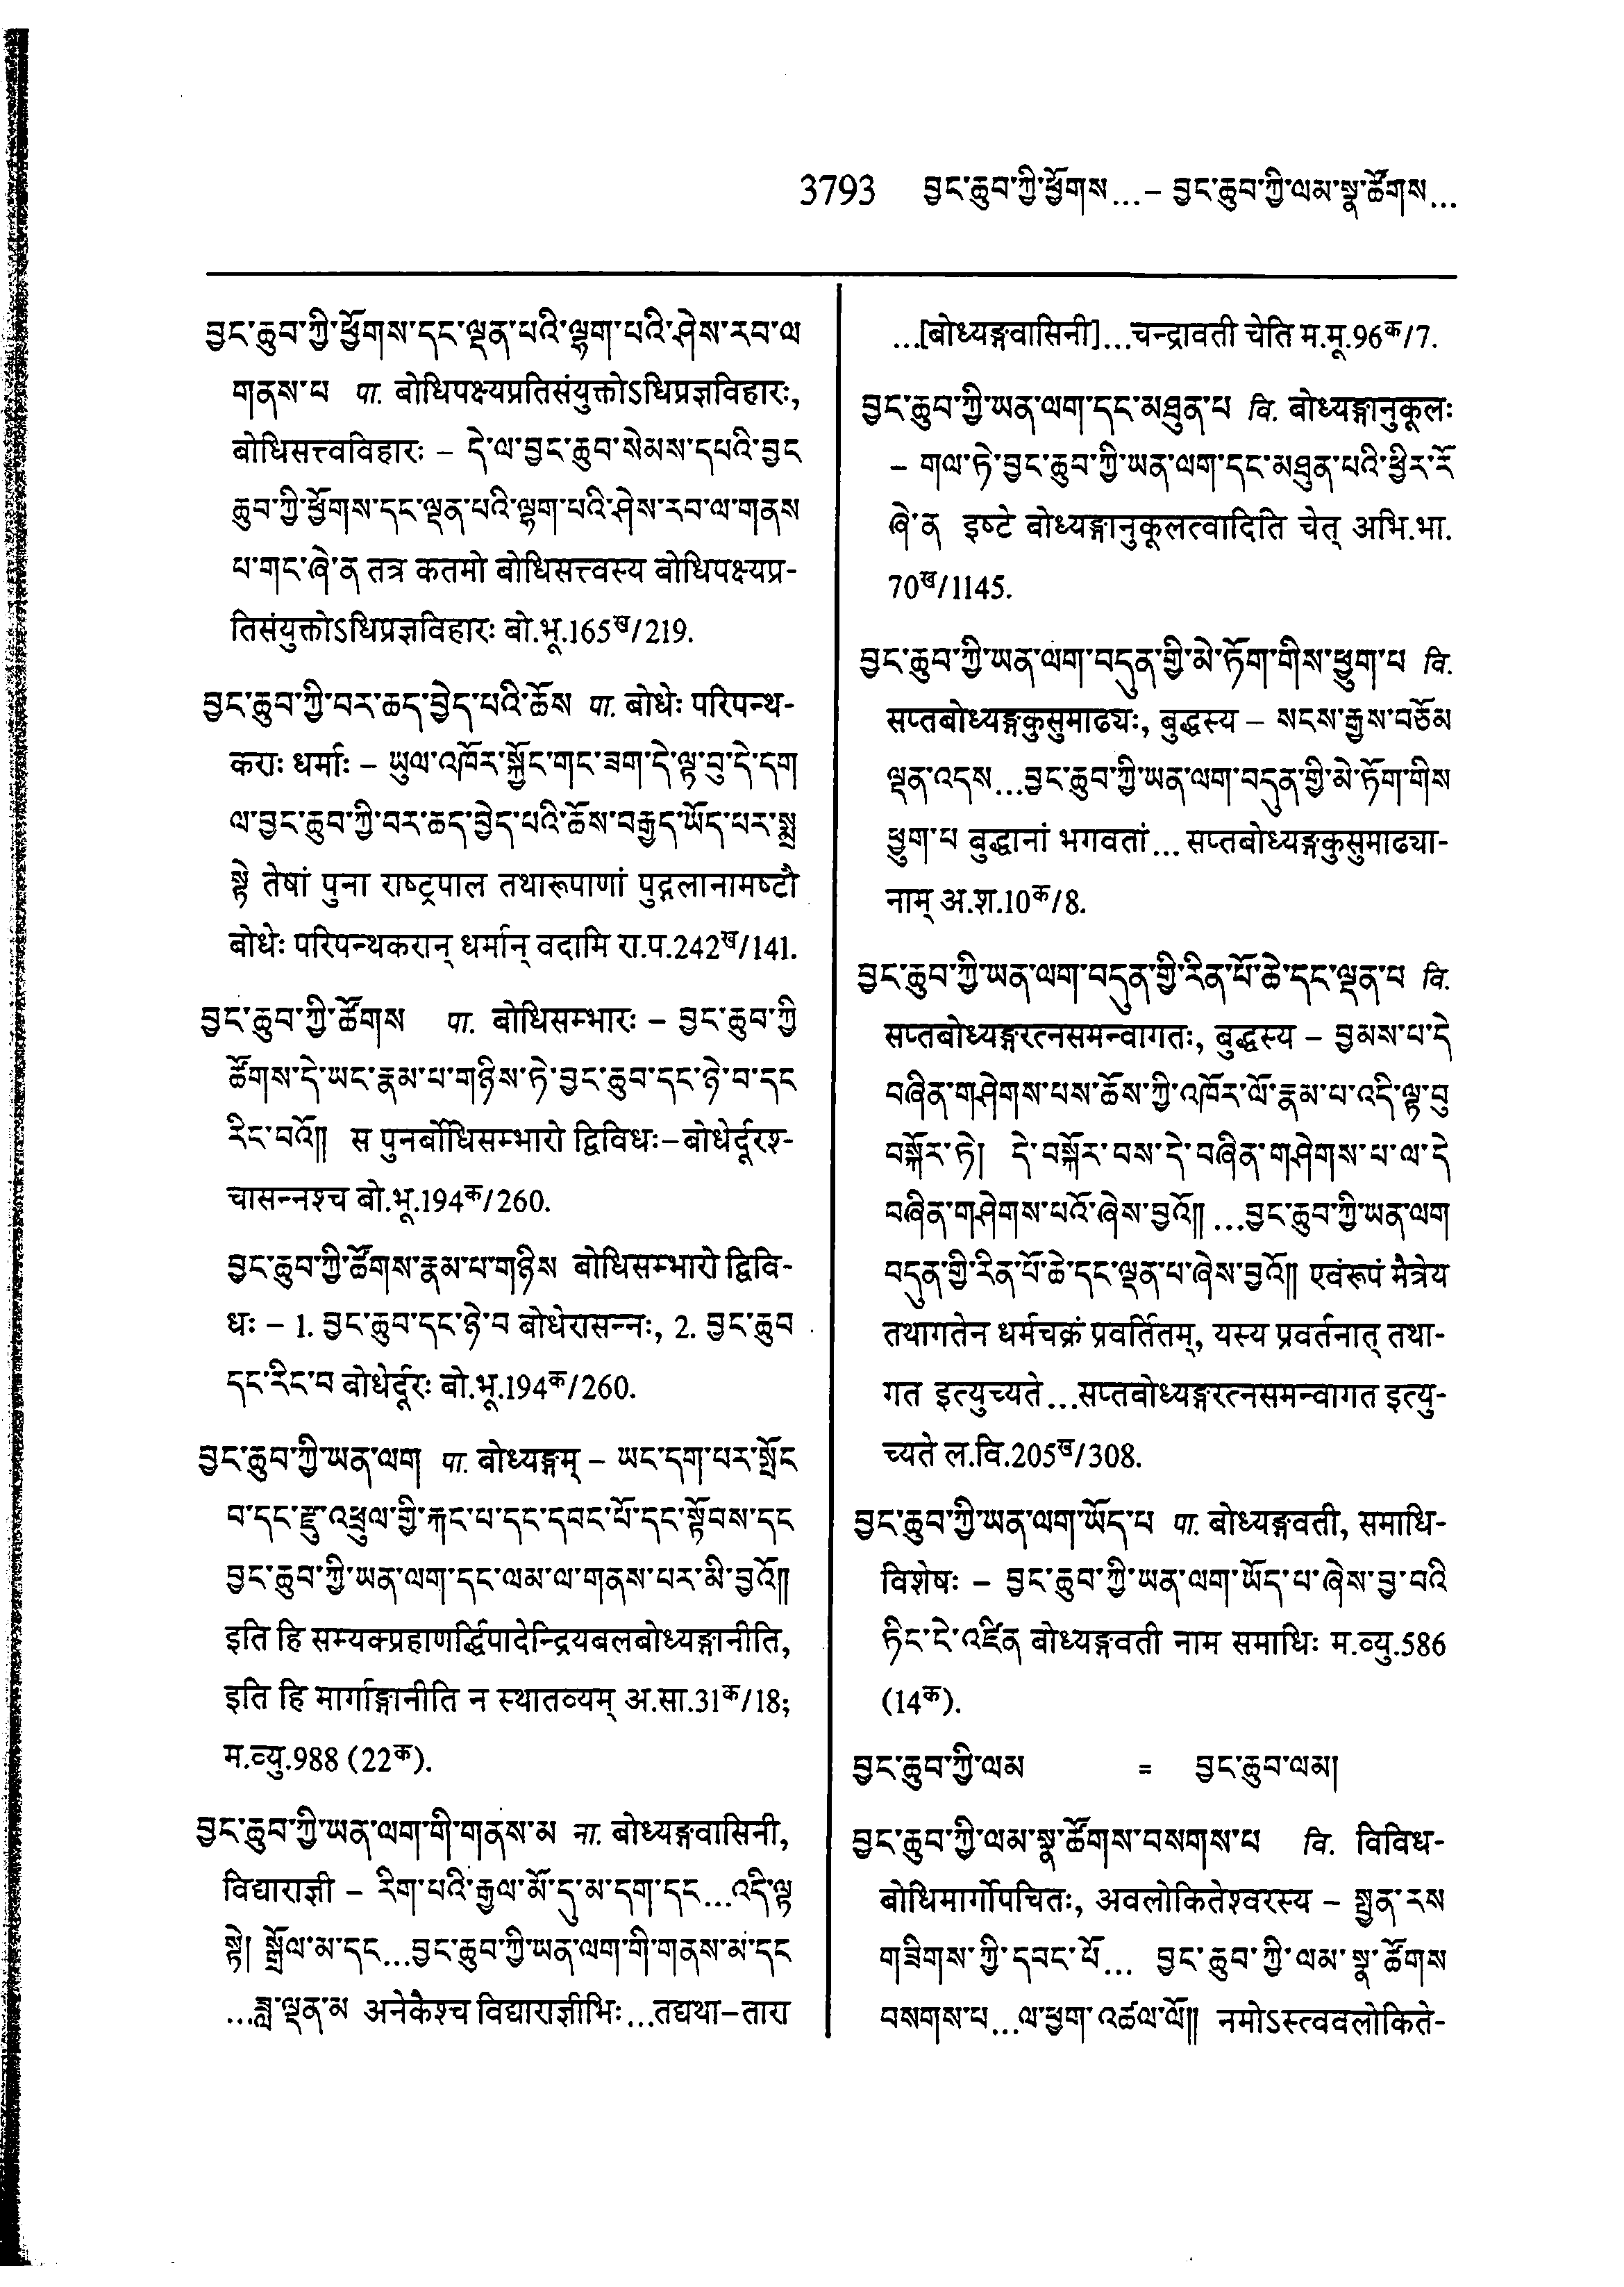 3793 བྱང་ཆུབ་ཀྱི་ཕྱོགས...– བྱང་ཆུབ་ཀྱི་ལམ་སྣ་ཚོགས...
བྱང་ཆུབ་ཀྱི་ཕྱོགས་དང་ལྡན་པའི་ལྷག་པའི་ཤེས་རབ་ལ
གནས་པ पा. बोधिपक्ष्यप्रतिसंयुक्तोऽधिप्रज्ञविहारः,
बोधिसत्त्वविहारः – དེ་ལ་བྱང་ཆུབ་སེམས་དཔའི་བྱང
ཆུབ་ཀྱི་ཕྱོགས་དང་ལྡན་པའི་ལྷག་པའི་ཤེས་རབ་ལ་གནས
པ་གང་ཞེ་ན तत्र कतमो बोधिसत्त्वस्य बोधिपक्ष्यप्र-
तिसंयुक्तोऽधिप्रज्ञविहारः बो.भू.165ख/219.
བྱང་ཆུབ་ཀྱི་བར་ཆད་བྱེད་པའི་ཆོས पा. बोधेः परिपन्थ-
कराः धर्माः – ཡུལ་འཁོར་སྐྱོང་གང་ཟག་དེ་ལྟ་བུ་དེ་དག
ལ་བྱང་ཆུབ་ཀྱི་བར་ཆད་བྱེད་པའི་ཆོས་བརྒྱད་ཡོད་པར་སྨྲ
སྟེ तेषां पुना राष्ट्रपाल तथारूपाणां पुद्गलानामष्टौ
बोधेः परिपन्थकरान् धर्मान् वदामि रा.प.242ख/141.
བྱང་ཆུབ་ཀྱི་ཚོགས पा. बोधिसम्भारः – བྱང་ཆུབ་ཀྱི
ཚོགས་དེ་ཡང་རྣམ་པ་གཉིས་ཏེ་བྱང་ཆུབ་དང་ཉེ་བ་དང
རིང་བའོ།། स पुनर्बोधिसम्भारो द्विविधः–बोधेर्दूरश्-
चासन्नश्च बो.भू.194क/260.
བྱང་ཆུབ་ཀྱི་ཚོགས་རྣམ་པ་གཉིས बोधिसम्भारो द्विवि-
धः – 1. བྱང་ཆུབ་དང་ཉེ་བ बोधेरासन्नः, 2. བྱང་ཆུབ
དང་རིང་བ बोधेर्दूरः बो.भू.194क/260.
བྱང་ཆུབ་ཀྱི་ཡན་ལག पा. बोध्यङ्गम् – ཡང་དག་པར་སྤོང
བ་དང་རྫུ་འཕྲུལ་གྱི་རྐང་པ་དང་དབང་པོ་དང་སྟོབས་དང
བྱང་ཆུབ་ཀྱི་ཡན་ལག་དང་ལམ་ལ་གནས་པར་མི་བྱའོ།།
इति हि सम्यक्प्रहाणर्द्धिपादेन्द्रियबलबोध्यङ्गानीति,
इति हि मार्गाङ्गानीति न स्थातव्यम् अ.सा.31क/18;
म.व्यु.988 (22क).
བྱང་ཆུབ་ཀྱི་ཡན་ལག་གི་གནས་མ ना. बोध्यङ्गवासिनी,
विद्याराज्ञी – རིག་པའི་རྒྱལ་མོ་དུ་མ་དག་དང...འདི་ལྟ
སྟེ། སྒྲོལ་མ་དང...བྱང་ཆུབ་ཀྱི་ཡན་ལག་གི་གནས་མ་དང
...ཟླ་ལྡན་མ अनेकैश्च विद्याराज्ञीभिः...तद्यथा–तारा
...[बोध्यङ्गवासिनी]...चन्द्रावती चेति म.मू.96क/7.
བྱང་ཆུབ་ཀྱི་ཡན་ལག་དང་མཐུན་པ वि. बोध्यङ्गानुकूलः
– གལ་ཏེ་བྱང་ཆུབ་ཀྱི་ཡན་ལག་དང་མཐུན་པའི་ཕྱིར་རོ
ཞེ་ན इष्टे बोध्यङ्गानुकूलत्वादिति चेत् अभि.भा.
70ख/1145.
བྱང་ཆུབ་ཀྱི་ཡན་ལག་བདུན་གྱི་མེ་ཏོག་གིས་ཕྱུག་པ वि.
सप्तबोध्यङ्गकुसुमाढ्यः, बुद्धस्य – སངས་རྒྱས་བཅོམ
ལྡན་འདས...བྱང་ཆུབ་ཀྱི་ཡན་ལག་བདུན་གྱི་མེ་ཏོག་གིས
ཕྱུག་པ बुद्धानां भगवतां...सप्तबोध्यङ्गकुसुमाढ्या-
नाम् अ.श.10क/8.
བྱང་ཆུབ་ཀྱི་ཡན་ལག་བདུན་གྱི་རིན་པོ་ཆེ་དང་ལྡན་པ वि.
सप्तबोध्यङ्गरत्नसमन्वागतः, बुद्धस्य – བྱམས་པ་དེ
བཞིན་གཤེགས་པས་ཆོས་ཀྱི་འཁོར་ལོ་རྣམ་པ་འདི་ལྟ་བུ
བསྐོར་ཏེ། དེ་བསྐོར་བས་དེ་བཞིན་གཤེགས་པ་ལ་དེ
བཞིན་གཤེགས་པའོ་ཞེས་བྱའོ།། ...བྱང་ཆུབ་ཀྱི་ཡན་ལག
བདུན་གྱི་རིན་པོ་ཆེ་དང་ལྡན་པ་ཞེས་བྱའོ།། एवंरूपं मैत्रेय
तथागतेन धर्मचक्रं प्रवर्तितम्, यस्य प्रवर्तनात् तथा-
गत इत्युच्यते...सप्तबोध्यङ्गरत्नसमन्वागत इत्यु-
च्यते ल.वि.205ख/308.
བྱང་ཆུབ་ཀྱི་ཡན་ལག་ཡོད་པ पा. बोध्यङ्गवती, समाधि-
विशेषः – བྱང་ཆུབ་ཀྱི་ཡན་ལག་ཡོད་པ་ཞེས་བྱ་བའི
ཏིང་ངེ་འཛིན बोध्यङ्गवती नाम समाधिः म.व्यु.586
(14क).
བྱང་ཆུབ་ཀྱི་ལམ = བྱང་ཆུབ་ལམ།
བྱང་ཆུབ་ཀྱི་ལམ་སྣ་ཚོགས་བསགས་པ वि. विविध-
बोधिमार्गोपचितः, अवलोकितेश्वरस्य – སྤྱན་རས
གཟིགས་ཀྱི་དབང་པོ... བྱང་ཆུབ་ཀྱི་ལམ་སྣ་ཚོགས
བསགས་པ...ལ་ཕྱག་འཚལ་ལོ།། नमोऽस्त्ववलोकिते-